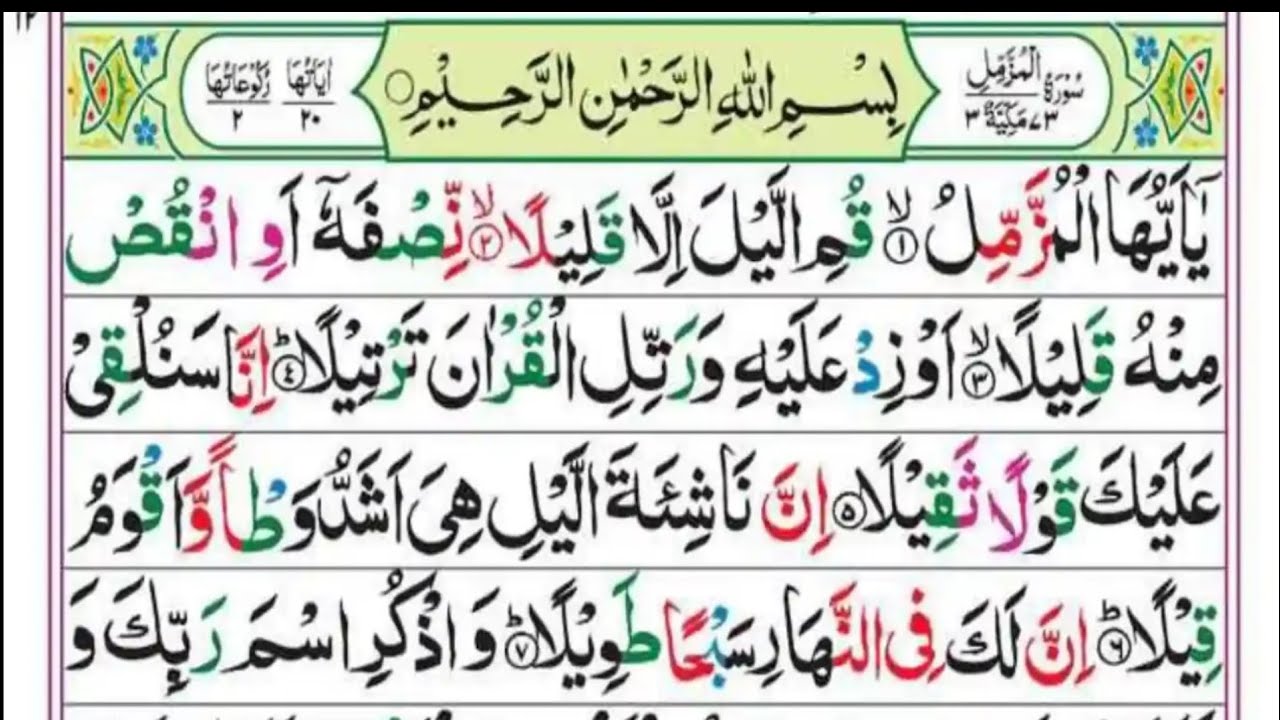 ۱۲
سُوْرَةُ الْمُزَّمِّلِ
۷۳ مَكِّيَّةٌ ۳
بِسْمِ اللهِ الرَّحْمٰنِ الرَّحِيْمِ○
اٰيَاتُهَا ۲۰
رُكُوْعَاتُهَا ۲
يٰۤاَيُّهَا الْمُزَّمِّلُ ۙ﴿۱﴾ قُمِ الَّيْلَ اِلَّا قَلِيْلًا ۙ﴿۲﴾ نِّصْفَهٗۤ اَوِ انْقُصْ
مِنْهُ قَلِيْلًا ۙ﴿۳﴾ اَوْ زِدْ عَلَيْهِ وَرَتِّلِ الْقُرْاٰنَ تَرْتِيْلًا ؕ﴿۴﴾ اِنَّا سَنُلْقِيْ
عَلَيْكَ قَوْلًا ثَقِيْلًا ﴿۵﴾ اِنَّ نَاشِئَةَ الَّيْلِ هِيَ اَشَدُّ وَطْاً وَّ اَقْوَمُ
قِيْلًا ؕ﴿۶﴾ اِنَّ لَكَ فِي النَّهَارِ سَبْحًا طَوِيْلًا ؕ﴿۷﴾ وَ اذْكُرِ اسْمَ رَبِّكَ وَ